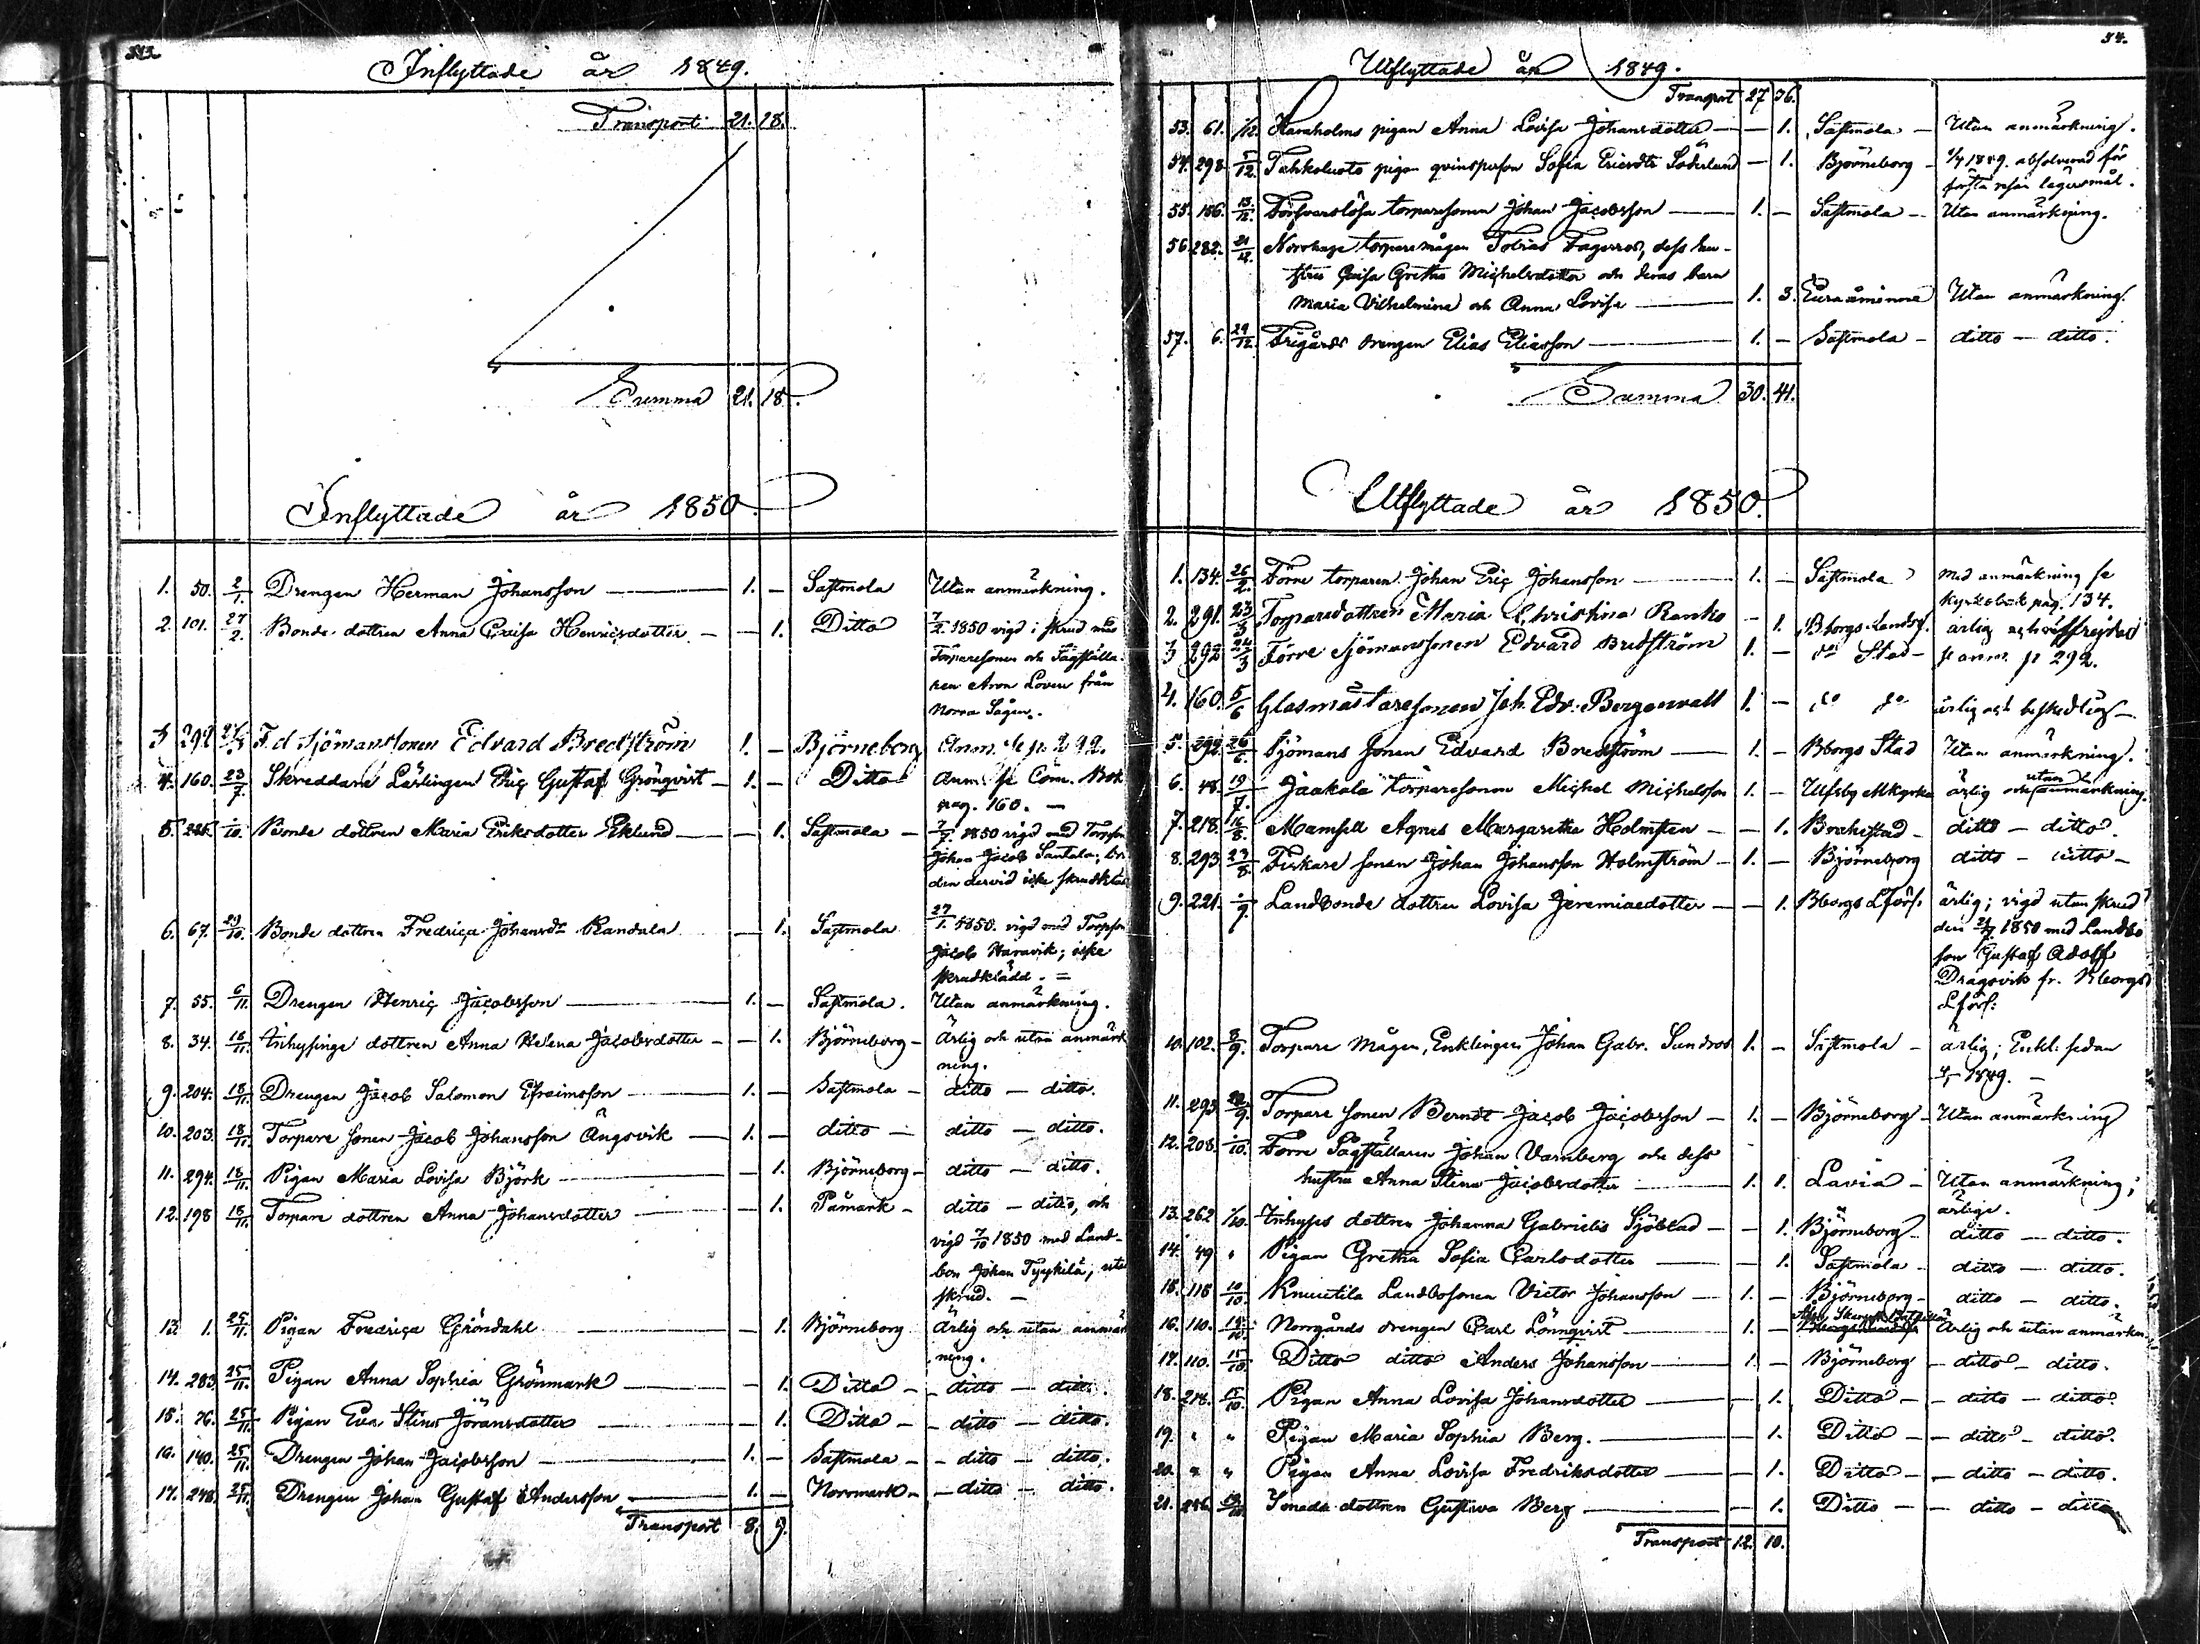 Inflyttade år 1849.
Transport 21. 18.
Summa 21. 18.
Inflyttade år 1850
1. 50. 2/1. Drengen Herman Johansson — 1. — Sastmola Utan anmärkning.
2. 101. 27/2. Bonde dottren Anna Caisa Henricsdotter — — 1. Ditto 7/2. 1850 vigd i skrud med
Torparesonen och Sågställa-
ren Aron Loven från
Norra Sågen.
3 292 F.d Sjömanssonen Edvard Bredström 1. — Björneborg Anm. se p. 292.
4. 160. 23/7. Skreddare Lärlingen Eric Gustaf Grönqvist — 1. — Ditto Anm. se Com. Bok
pag. 160. —
5. Bonde dottren Maria Eriksdotter Eklund — — 1. Sastmola — 1850 vigd med
Johan Jacob Santala;
den dervid icke skrudkläd
6. 67. 29/10. Bonde dottren Fredrica Johansdr Randala — 1. Sastmola 1850. vigd med
Jacob Haravik; icke
skrudklädd. =
7. 55. 6/11. Drengen Henric Jacobsson — 1. — Sastmola. Utan anmärkning.
8. 34. 18/11. Inhysinge dottren Anna Helena Jacobsdotter — — 1. Björneborg — Ärlig och utan anmärk
ning.
9. 204. 18/11. Drengen Jacob Salomon Efraimsson — 1. — Sastmola — ditto — ditto.
10. 203. 18/11. Torpare sonen Jacob Johansson Ängsvik — 1. — ditto — ditto — ditto.
11. 294. 18/11. Pigan Maria Lovisa Björk — — 1. Björneborg — ditto — ditto.
12. 198 18/11. Torpare dottren Anna Johansdotter — — 1. Påmark — ditto — ditto, och
vigd 7/10 1850 med Land-
bon Johan Tyykilä; utan
skrud. —
13. 1. 25/11. Pigan Fredrica Gröndahl — — 1. Björneborg Ärlig och utan anmärk
ning.
14. 283. 25/11. Pigan Anna Sophia Grönmark — — 1. Ditto — ditto — ditto.
15. 76. 25/11. Pigan Eva Stina Göransdotter — — 1. Ditto — ditto — ditto.
16. 140. 25/11. Drengen Johan Jacobsson — 1. — Sastmola — ditto — ditto.
17. 248. 25/11. Drengen Johan Gustaf Andersson — 1. — Norrmark — ditto — ditto.
Transport 8. 9.
54.
Utflyttade år 1849.
Transport 27 36.
53. 61. Pigan Anna Lovisa Johansdotter — — 1. Sastmola — Utan anmärkning.
54. 298. 5/12. Tahkoluoto pigan qvinsperson Sofia Ericsdtr Söderlund — 1. Björneborg — 1849. absolverad för
första resan lägersmål.
55. 186. 13/12. Försvarslösa torparesonen Johan Jacobsson — 1. — Sastmola — Utan anmärkning.
56. 282. 21/12. Norrhage torparemågen Tobias Fagerros, dess hu-
stru Caisa Gretha Michelsdotter och deras barn
Maria Vilhelmina och Anna Lovisa — 1. 3. Euraåminne Utan anmärkning.
57. 6. 29/12. Frigårds drengen Elias Eliasson — 1. — Sastmola — ditto — ditto.
Summa 30. 41.
Utflyttade år 1850.
1. 134. 26/2. Förre torparen Johan Eric Johansson — 1. — Sastmola Med anmärkning se
Kyrkobok pag. 134.
2. 291. 23/3 Torparedottren Maria Christina Ranko — 1. Bborgs Landsf. ärlig och
3 292 Förre Sjömanssonen Edvard Bredström 1. — do Stad — se anm. p 292.
4. 160. 5/6 Glasmästaresonen Joh. Edv. Bergenvall 1. — do do ärlig och beskedlig —
5. 292. 26/6. Sjömans sonen Edvard Bredström — 1. — Bborgs Stad Utan anmärkning.
6. 48. 19/7. Jaakola torparesonen Michel Michelsson 1. — Ulfsby Mkyrka ärlig och utan anmärkning.
7. 218. 16/8. Mamsell Agnes Margaretha Holmsten — — 1. Brahestad — ditto — ditto.
8. 293 23/8 Fiskare sonen Johan Johansson Holmström — 1. — Björneborg ditto — ditto —
9. 221. Landbonde dottren Lovisa Jeremiaedotter — — 1. Bborgs Lförs. ärlig; vigd utan skrud
den 1850 med Landbo
son Gustaf Adolf
Dragsvik fr. Bborgs
Lförs:
10. 102. 8/9. Torpare Mågen, Enklingen Johan Gabr. Sundroos 1. — Sastmola — ärlig; Enkl. sedan
1849. —
11. 293 Torpare sonen Berndt Jacob Jacobsson — 1. — Björneborg — Utan anmärkning
12. 208. Förre Sågställaren Johan Varnberg och dess
hustru Anna Stina Jacobsdotter — 1. 1. Lavia — Utan anmärkning;
ärlige.
13. 262 1/10. Inhyses dottren Johanna Gabrielis Sjöblad — — 1. Björneborg — ditto — ditto.
14. 49 " Pigan Gretha Sofia Carlsdotter — 1. Sastmola — ditto — ditto.
15. 118 10/10. Knuutila Landbosonen Victor Johansson — 1. — Björneborg — ditto — ditto.
16. 110. Norrgårds drengen Carl Lönnqvist — 1. — Ärlig och utan anmärkn.
17. 110. 15/10 Ditto ditto Anders Johansson — 1. — Björneborg — ditto — ditto.
18. 218. 15/10. Pigan Anna Lovisa Johansdotter — — 1. Ditto — ditto — ditto.
19. " " Pigan Maria Sophia Berg. — — 1. Ditto — ditto — ditto.
20. " " Pigan Anna Lovisa Fredriksdotter — — 1. Ditto — ditto — ditto.
21. 286. Smeds dottren Gustava Berg — — 1. Ditto — ditto — ditto
Transport 12. 10.